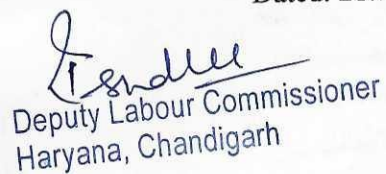 Dated:
Deputy Labour Commissioner
Haryana, Chandigarh